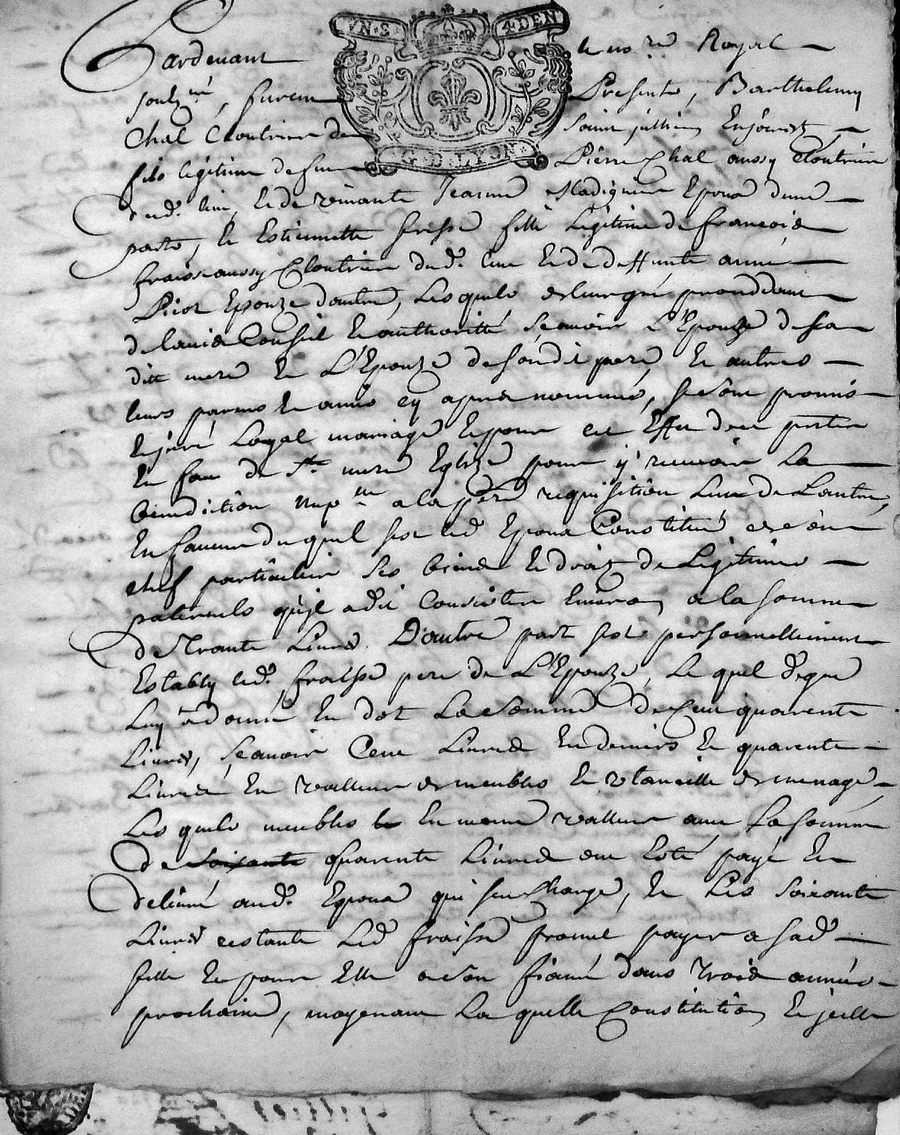 VN·S· 4·DEN
G·D·LYON
Pardevant le no.re Royal
soubz.né, furent Presents, Barthelemy
Chal Cloutrier de saint jullien Enjarest
fils légitime de feu Pierre Chal aussy Cloutrier
dud. lieu, et de vivante Jeanne Epoux d'une
part, et Estiennette fraisse fille Légitime de françois
fraisse aussy Cloutrier dud. lieu et de deffunte anne
Picot Epouze d'autre, Lesquels
de l'avis Conseil et authorité sçavoir L'Epoux de sa
ditte mere et L'Epouze de sondit pere, et autres
leurs parens et amis cy apres nommés, se sont promis
et juré Loyal mariage et pour cet Effet de se porter
en face de Ste mere Eglize pour y recevoir La
bénédiction nup.lle a la p.re requisition L'un de L'autre,
En faveur duquel sest led. Epoux Constitué en son
chef particulier ses biens et droits de Légitime
paternels qu'il a dit Consister Environ a la somme
de Trante Livres. D'autre part sest personnellement
Estably led. fraisse pere de L'Epouze, Le quel de gré
Luy a donné En dot La somme de Cent quarente
Livres, Sçavoir Cent Livres En deniers et quarente
Livres En valleur de meubles et utancille de menage,
Les quels meubles En meme valleur avec La somme
de soixante quarente Livres ont Esté payé et
délivré aud. Epoux qui s'en Charge, et Les soixante
Livres restante Led. fraisse promet payer a sad.
fille et pour Elle a son fiancé dans trois années
prochaine, moyenant La quelle Constitution, Icelle